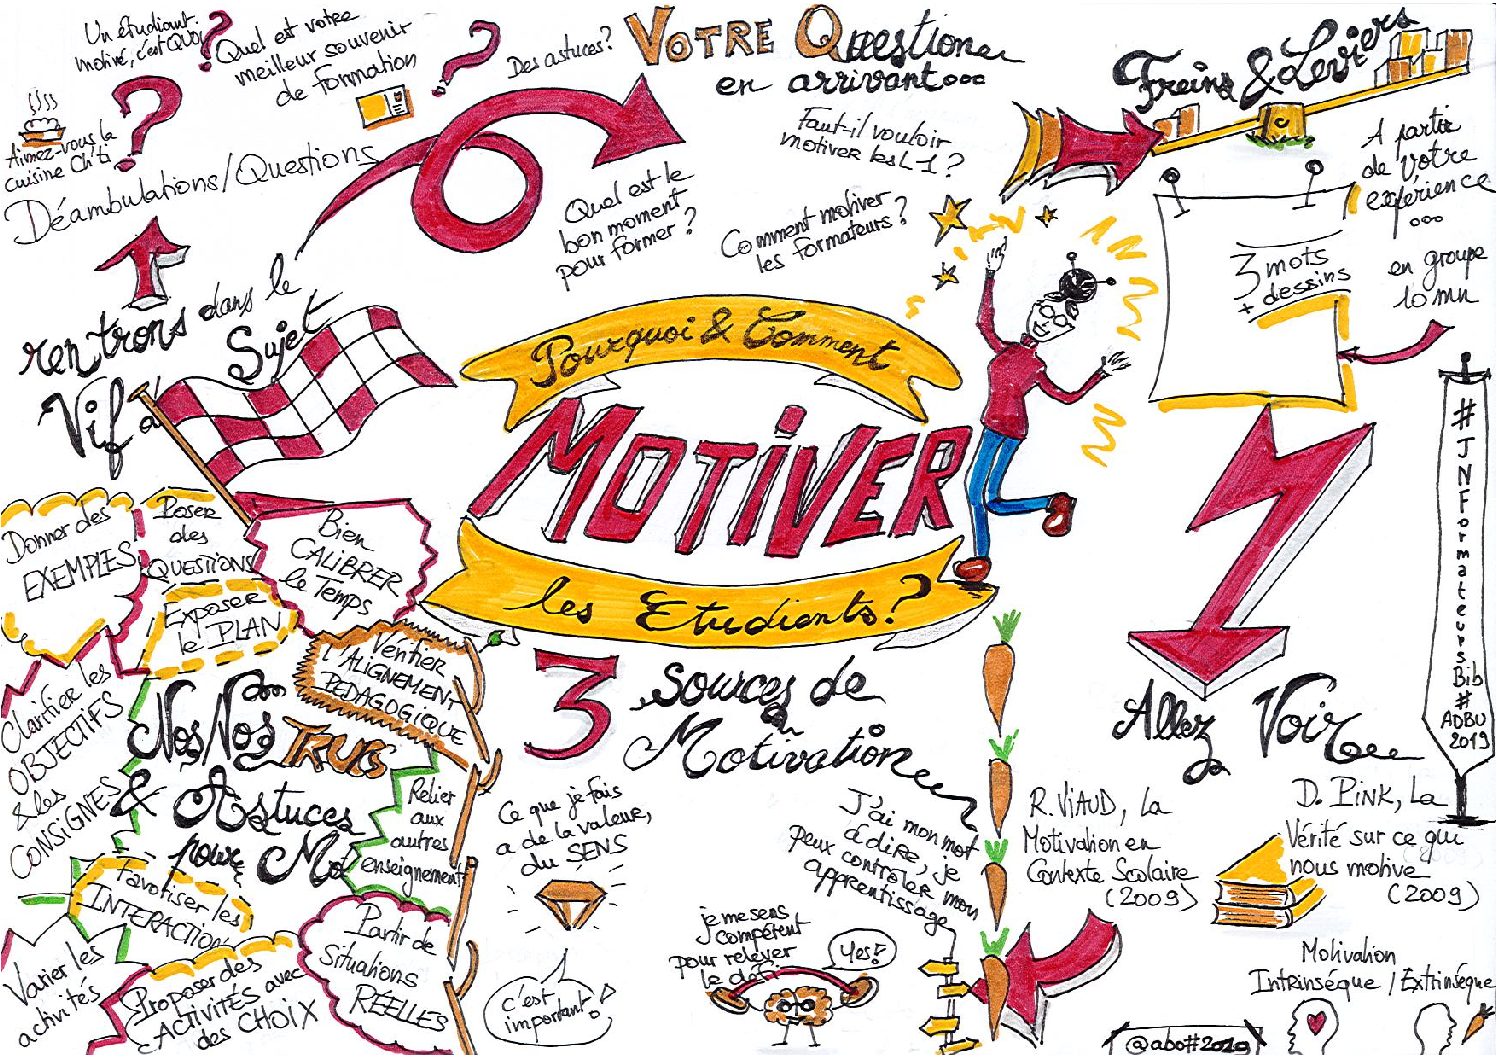 Un étudiant
motivé, c'est QUOI
?
Quel est votre
meilleur souvenir
de formation
?
Des astuces?
VOTRE Question
en arrivant...
Aimez-vous la
cuisine Ch'ti
?
Déambulations/Questions
Quel est le
bon moment
pour former ?
Faut-il vouloir
motiver les L1 ?
Comment motiver
les formateurs ?
Freins & Leviers
A partir
de votre
expérience
...
en groupe
10 mn
3 mots
+ dessins
rentrons dans le
Vif du
Sujet
Pourquoi & Comment
MOTIVER
les Etudiants?
Donner des
EXEMPLES
Poser
des
QUESTIONS
Bien
CALIBRER
le Temps
Exposer
le PLAN
l'ALIGNEMENT
PEDAGOGIQUE
Clarifier les
OBJECTIFS
& les
CONSIGNES
Nos Nos TRUCS
& Astuces
pour Mo
Relier
aux
autres
enseignements
Favoriser les
INTERACTION
Varier les
activités
Proposer des
ACTIVITÉS avec
des CHOIX
Partir de
Situations
RÉELLES
3 Sources de
Motivation
Ce que je fais
a de la valeur,
du SENS
c'est
important!
je me sens
compétent
pour relever
le défi
Yes!
J'ai mon mot
à dire, je
peux contrôler mon
apprentissage
Allez Voir
R. VIAUD, La
Motivation en
Contexte Scolaire
(2009)
D. PINK, La
Vérité sur ce qui
nous motive
(2009)
Motivation
Intrinsèque / Extrinsèque
#JNFormateursBib
#
ADBU
2019
@abo#2019